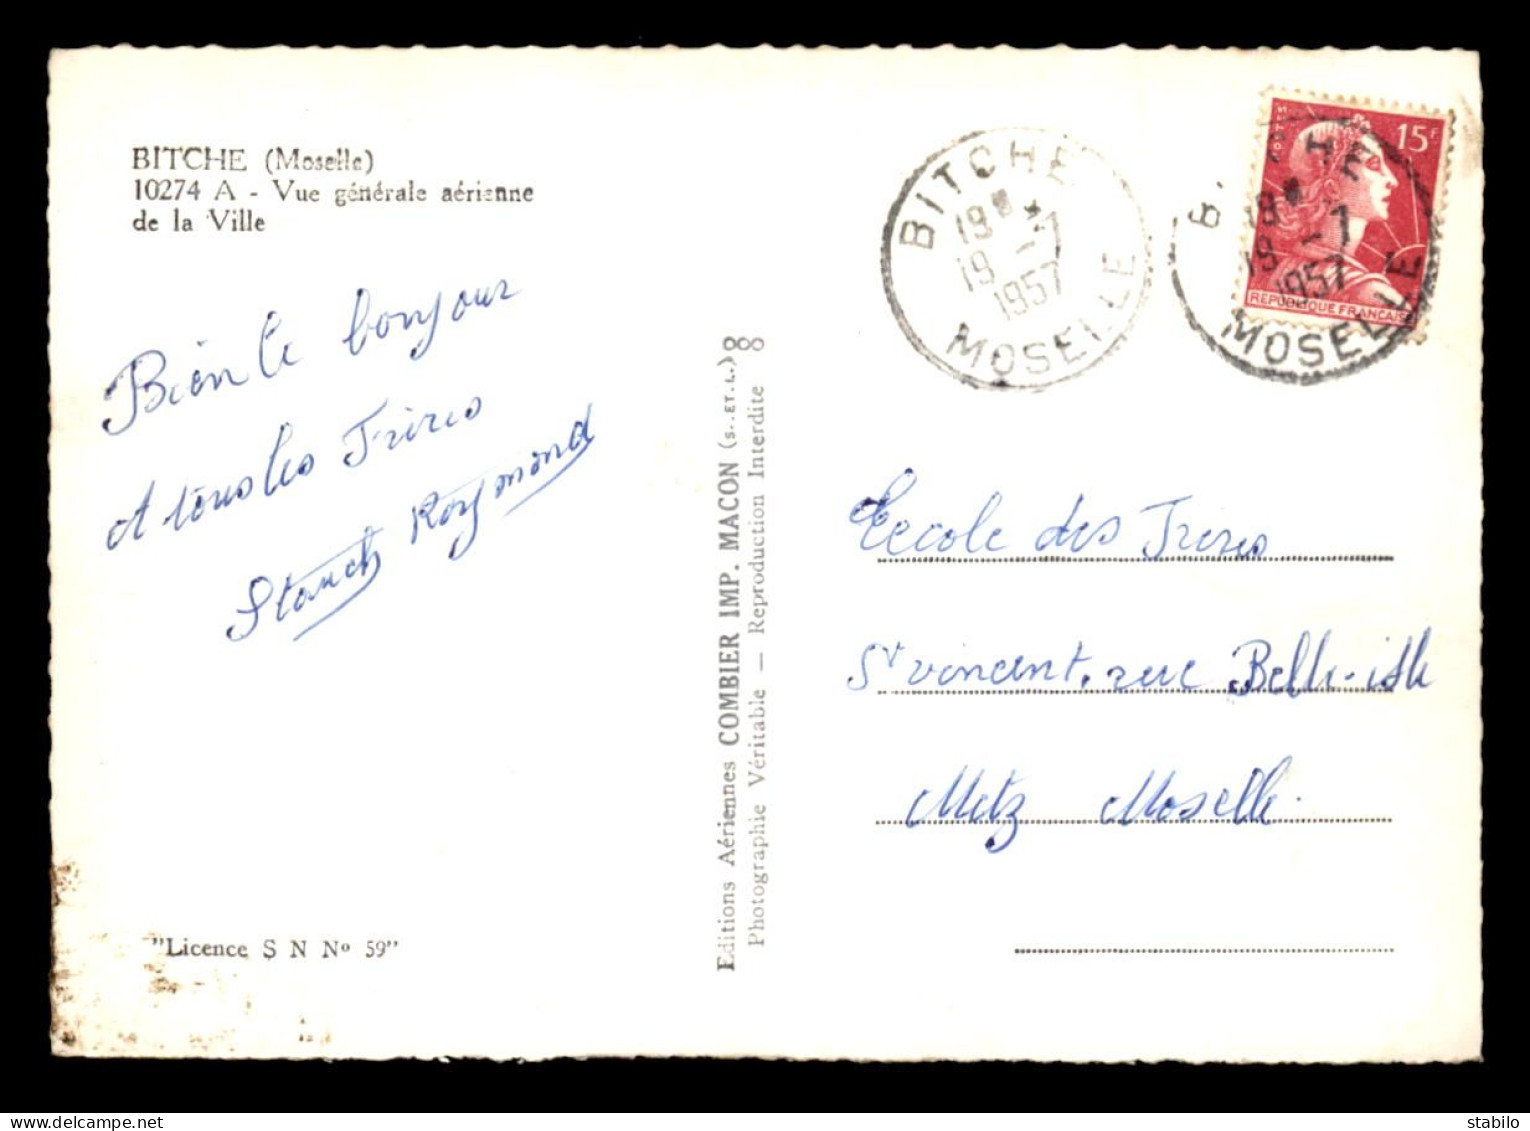 BITCHE (Moselle)
10274 A - Vue générale aérienne
de la Ville
Bien le bonjour
A tous les Frères
Stauch Raymond
"Licence S N Nº 59"
Editions Aériennes COMBIER IMP. MACON (S.-ET-L.)
Photographie Véritable — Reproduction Interdite
BITCHE
18 H
19 - 7
1957
MOSELLE
POSTES
15F
REPUBLIQUE FRANCAISE
BITCHE
18 H
19 - 7
1957
MOSELLE
des Frères
St vincent. rue Belle-isle
Metz Moselle.